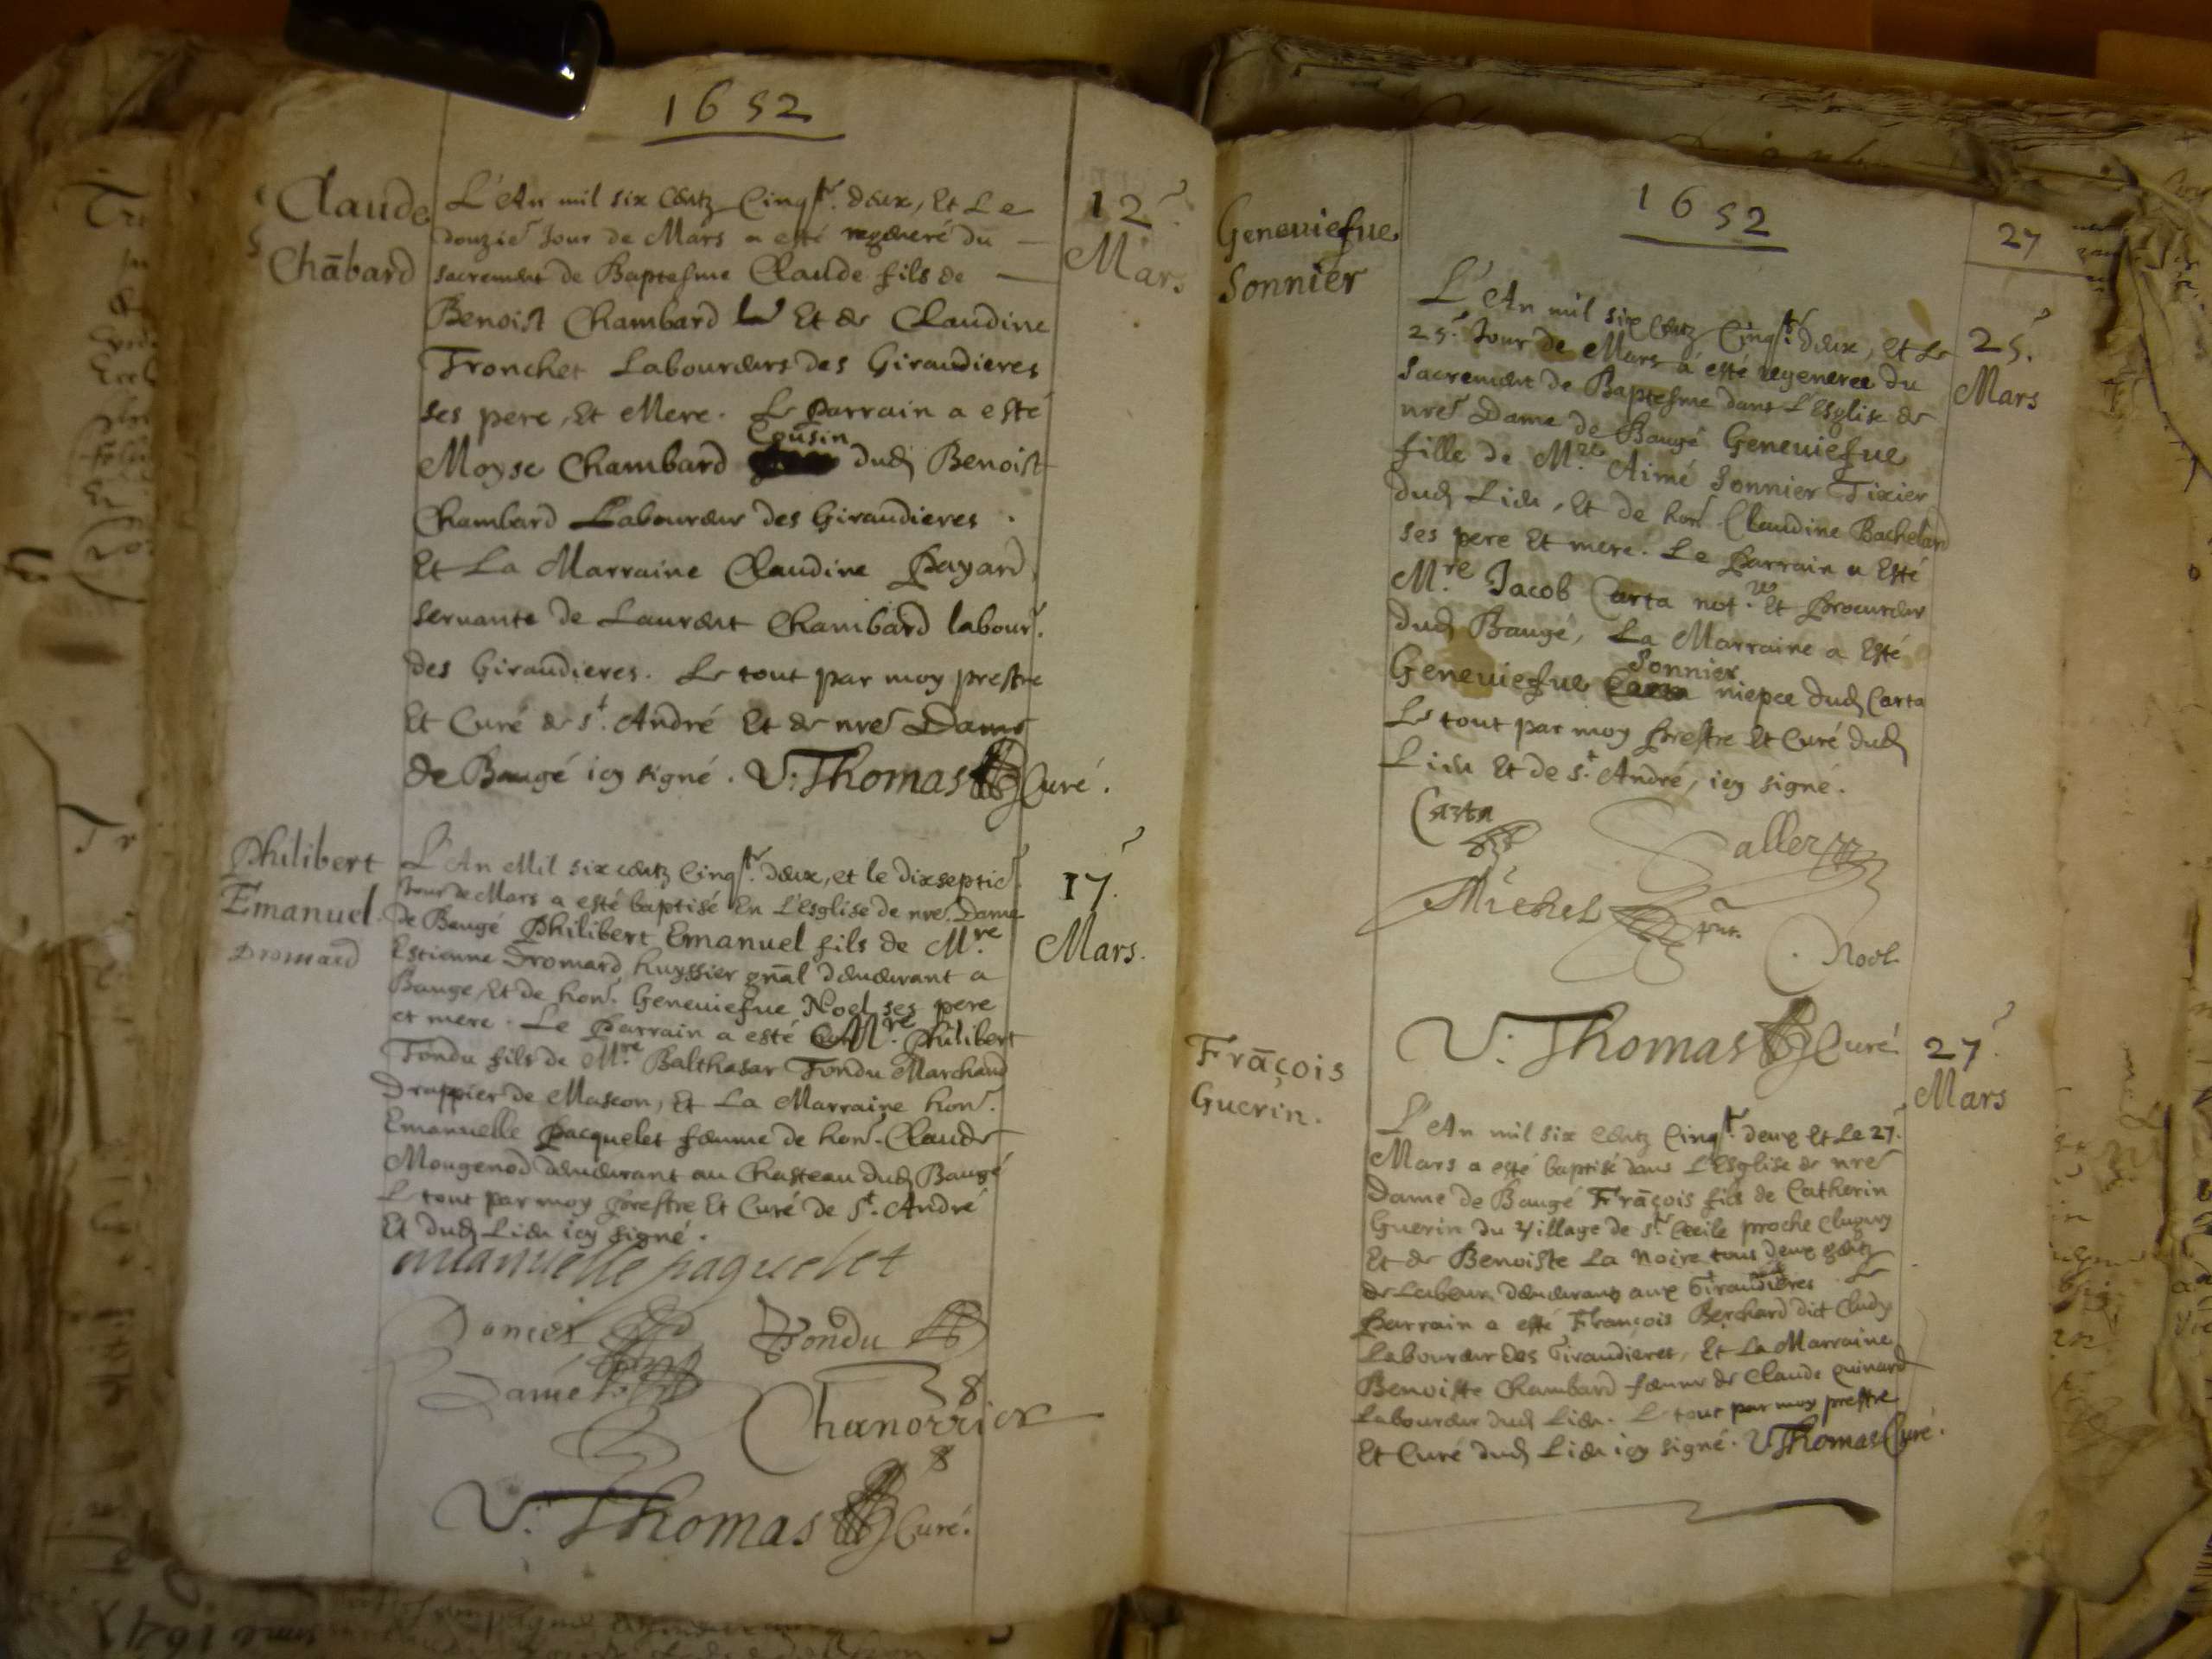 1652
Claude
Chābard
12.
Mars
L'An mil six centz Cinqte. deux, Et Le
douzie Jour de Mars a esté regeneré du
sacrement de Baptesme Claude fils de
Benoist Chambard Et de Claudine
Tronchet Laboureurs des Giraudieres
ses pere, Et Mere. Le Parrain a esté
Cousin
Moyse Chambard dud Benoist
Chambard Laboureur des Giraudieres.
Et La Marraine Claudine Payard
seruante de Laurent Chambard labour.
des Giraudieres. Le tout par moy prestre
Et Curé de St. André Et de nre Dame
de Baugé icy signé. V. Thomas Curé.
Philibert
Emanuel
Dromard
17.
Mars.
L'An Mil six centz Cinqte. deux, et le dixseptie.
Jour de Mars a esté baptisé En L'Esglise de nre. Dame
de Baugé Philibert Emanuel fils de Mre
Estienne Dromard huyssier gnāl demeurant a
Bauge, Et de hon. Geneuiefue Noel ses pere
et mere. Le Parrain a esté Mre. Philibert
Tondu fils de Mre Balthasar Tondu Marchand
Drappier de Mascon, Et La Marraine hon.
Emanuelle Pacquelet femme de hon. Claude
Mougenod demeurant au Chasteau dud Baugé
Le tout par moy Prestre Et Curé de St. André
Et dud Lieu icy signé.
manuelle paquelet
Tondu
V. Thomas Curé.
1652
27
Geneuiefue
Sonnier
25.
Mars
L'An mil six Centz Cinqte. deux, Et Le
25. Jour de Mars a esté regeneree du
Sacrement de Baptesme dans L'Esglise de
nre Dame de Baugé Geneuiefue
fille de Mre Aimé Sonnier Tixier
dud Lieu, Et de hon Claudine Bachelard
ses pere Et mere. Le Parrain a Esté
Mre Jacob Carta not. re Et Procureur
dud Baugé, La Marraine a Esté
Sonnier
Geneuiefue niepce dud Carta
Le tout par moy Prestre Et Curé dud
Lieu Et de St. André, icy signé.
Carta
Michel
Noel
V. Thomas Curé
Frāçois
Guerin.
27
Mars
L'An mil six Centz Cinqte. deux Et Le 27.
Mars a esté baptisé dans L'Esglise de nre
Dame de Baugé Frāçois fils de Catherin
Guerin du Village de Ste Cecile proche Clugny
Et de Benoiste La Noire tous deux gentz
de Labeur demeurans aux Giraudieres Le
Parrain a esté François Berchard dict Cludy
Laboureur des Giraudieres, Et La Marraine
Benoiste Chambard femme de Claude guinard
Laboureur dud Lieu. Le tout par moy prestre
Et Curé dud Lieu icy signé. V. Thomas Curé.